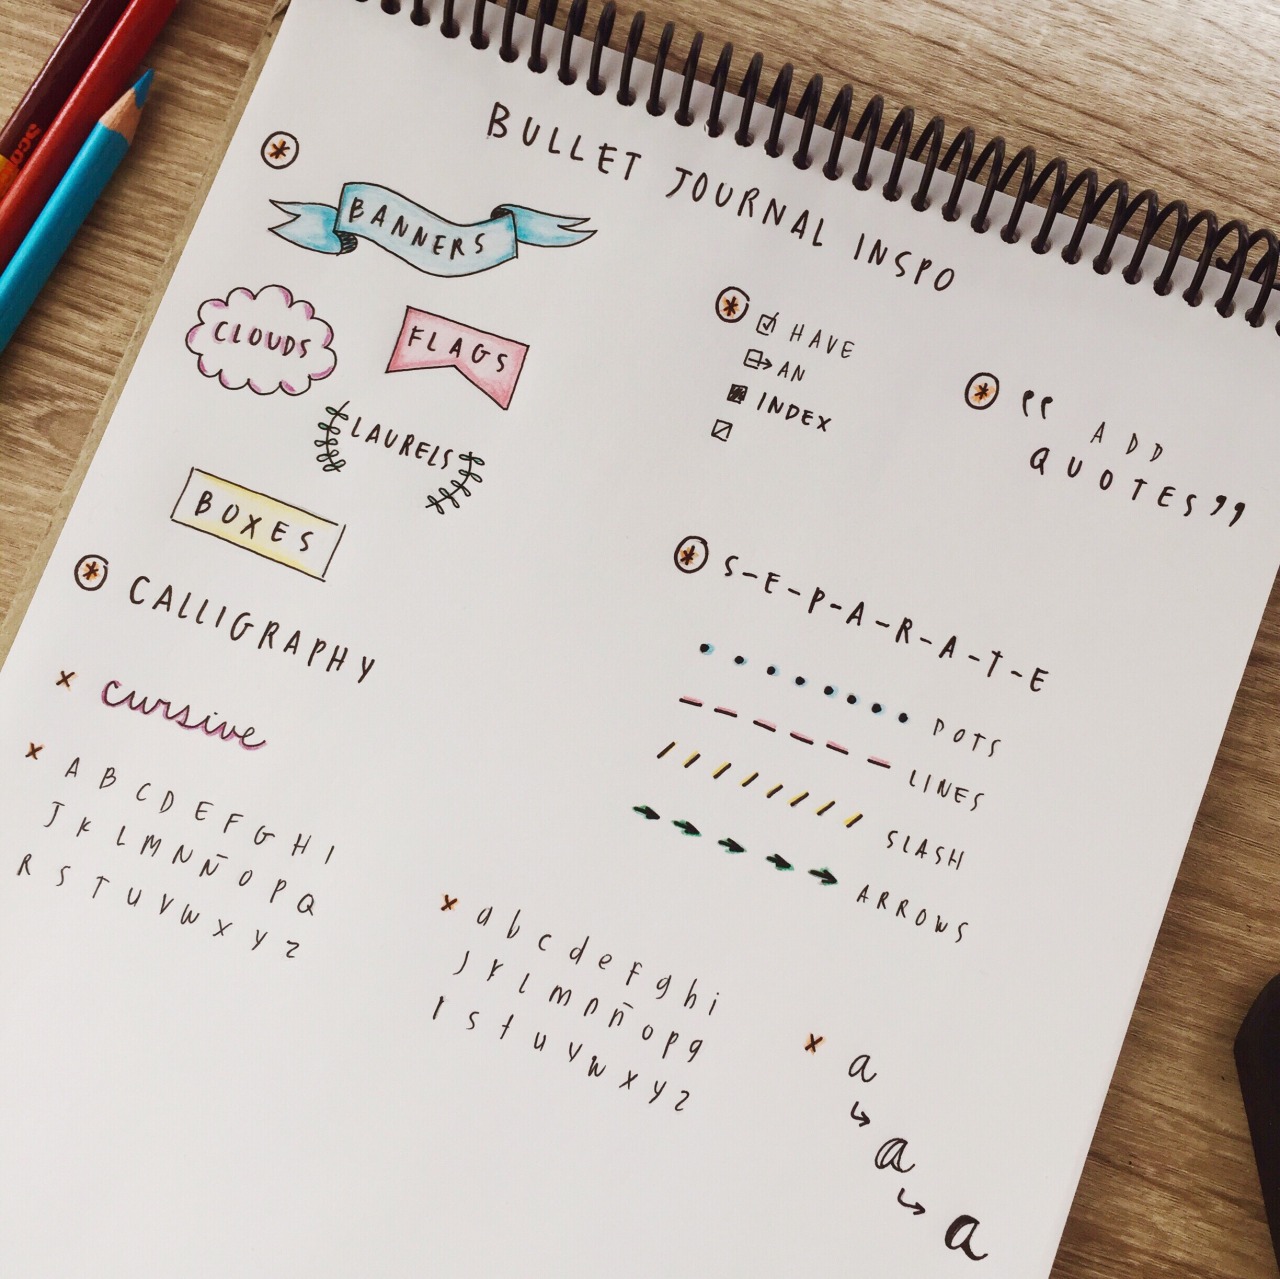 BULLET JOURNAL INSPO
BANNERS
CLOUDS
FLAGS
LAURELS
BOXES
HAVE
AN
INDEX
“ ADD
QUOTES”
S-E-P-A-R-A-T-E
DOTS
LINES
SLASH
ARROWS
CALLIGRAPHY
cursive
A B C D E F G H I
J K L M N Ñ O P Q
R S T U V W X Y Z
a b c d e f g h i
j k l m n ñ o p q
r s t u v w x y z
a
a
a